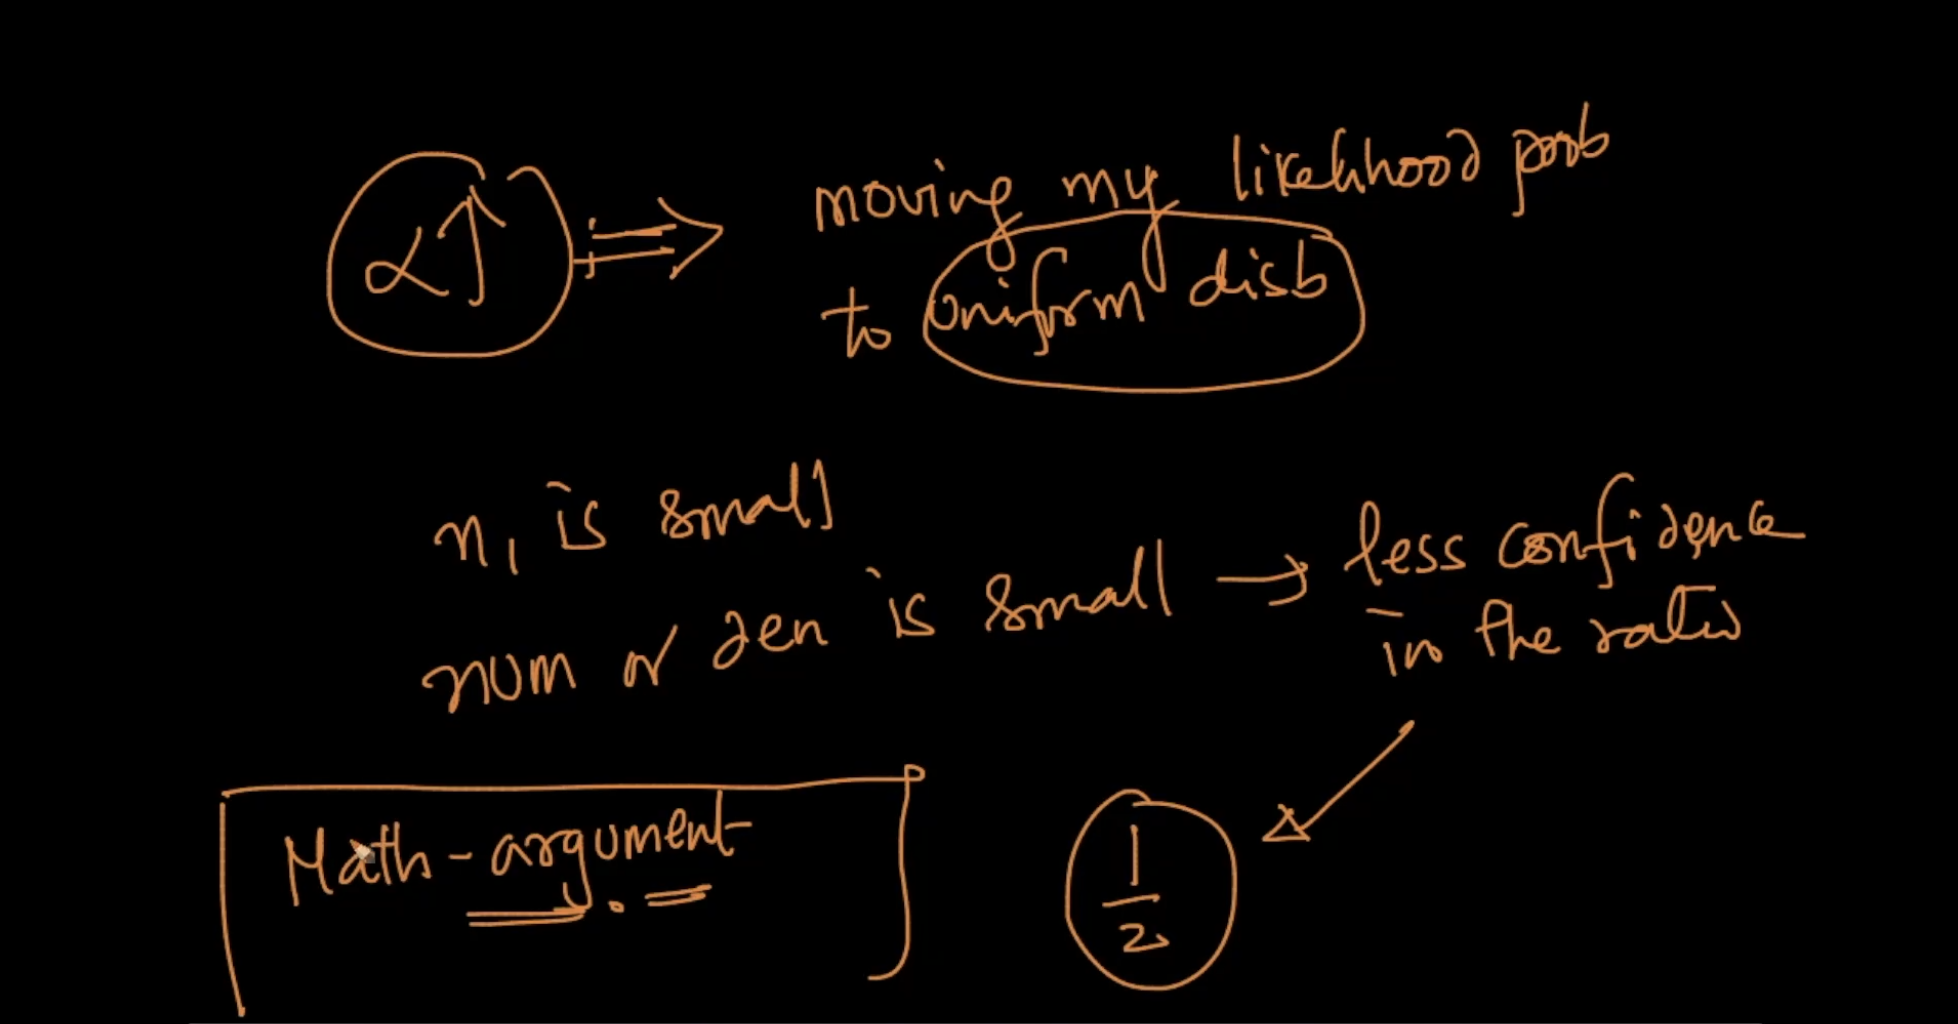 α↑ ⇒ moving my likelihood prob
to uniform disb
n₁ is small
num or den is small → less confidence
in the ratio
Math-argument
1/2